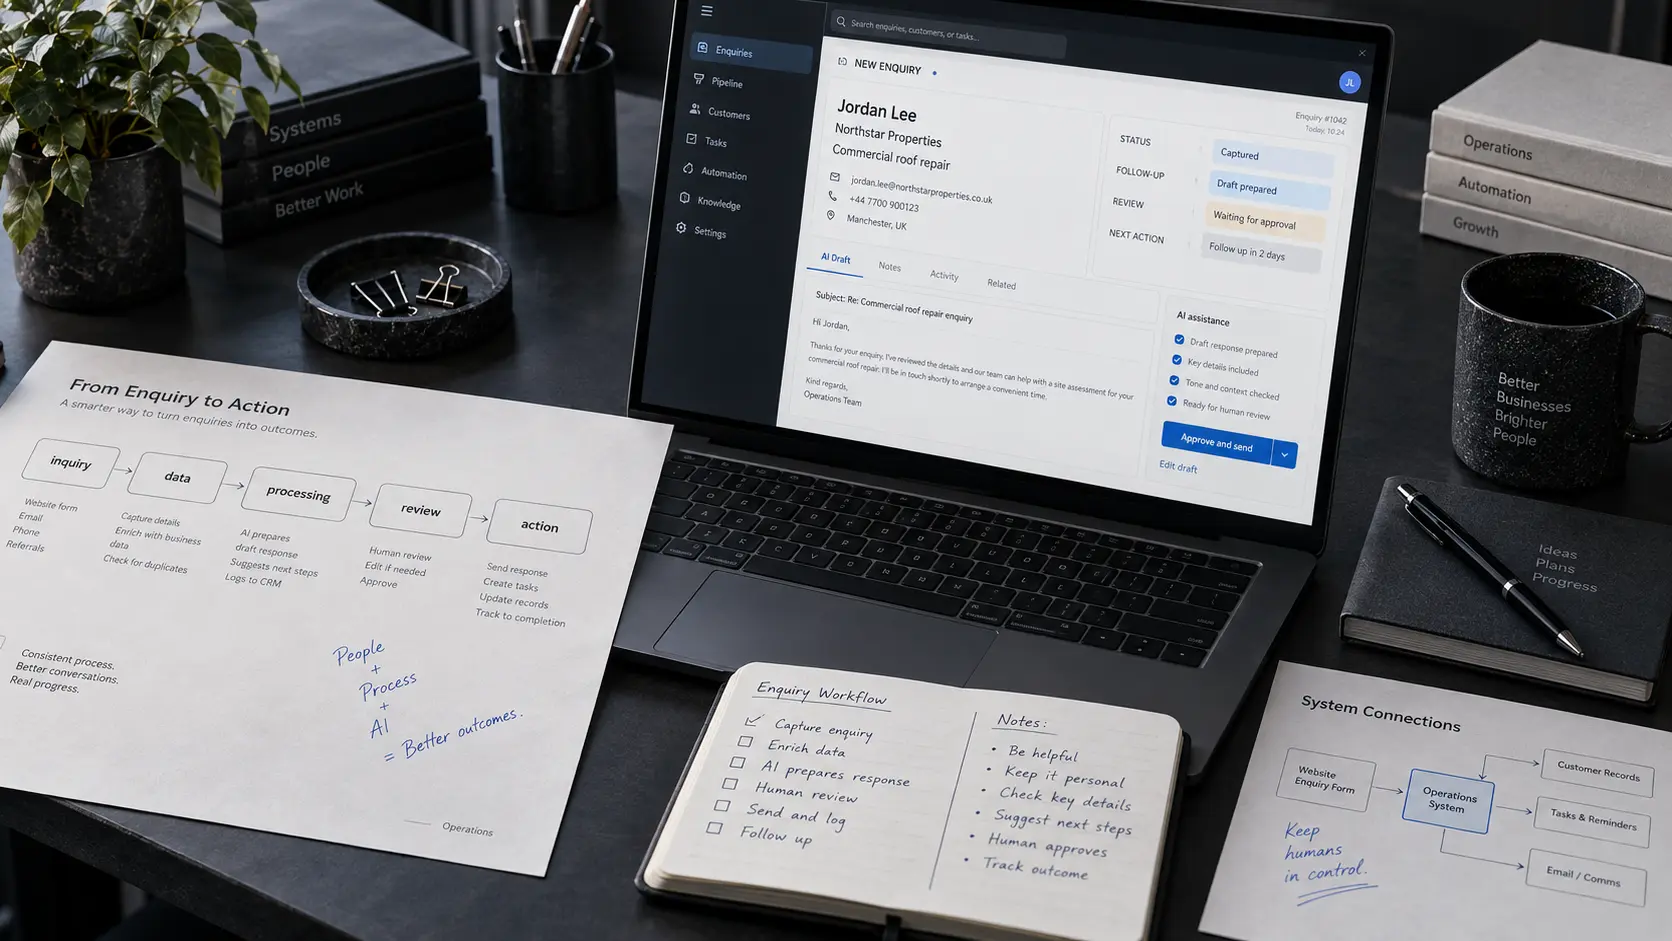 Systems
People
Better Work
Search enquiries, customers, or tasks...
Enquiries
Pipeline
Customers
Tasks
Automation
Knowledge
Settings
NEW ENQUIRY
JL
Enquiry #1042
Today, 10:24
Jordan Lee
Northstar Properties
Commercial roof repair
jordan.lee@northstarproperties.co.uk
+44 7700 900123
Manchester, UK
STATUS
Captured
FOLLOW-UP
Draft prepared
REVIEW
Waiting for approval
NEXT ACTION
Follow up in 2 days
AI Draft
Notes
Activity
Related
Subject: Re: Commercial roof repair enquiry
Hi Jordan,
Thanks for your enquiry. I've reviewed the details and our team can help with a site assessment for your
commercial roof repair. I'll be in touch shortly to arrange a convenient time.
Kind regards,
Operations Team
AI assistance
Draft response prepared
Key details included
Tone and context checked
Ready for human review
Approve and send
Edit draft
Operations
Automation
Growth
Better
Businesses
Brighter
People
Ideas
Plans
Progress
From Enquiry to Action
A smarter way to turn enquiries into outcomes.
inquiry
Website form
Email
Phone
Referrals
data
Capture details
Enrich with business
data
Check for duplicates
processing
AI prepares
draft response
Suggests next steps
Logs to CRM
review
Human review
Edit if needed
Approve
action
Send response
Create tasks
Update records
Track to completion
Consistent process.
Better conversations.
Real progress.
People
+
Process
+
AI
= Better outcomes.
Operations
Enquiry Workflow
Capture enquiry
Enrich data
AI prepares response
Human review
Send and log
Follow up
Notes:
• Be helpful
• Keep it personal
• Check key details
• Suggest next steps
• Human approves
• Track outcome
System Connections
Website
Enquiry Form
Operations
System
Customer Records
Tasks & Reminders
Email / Comms
Keep
humans
in control.